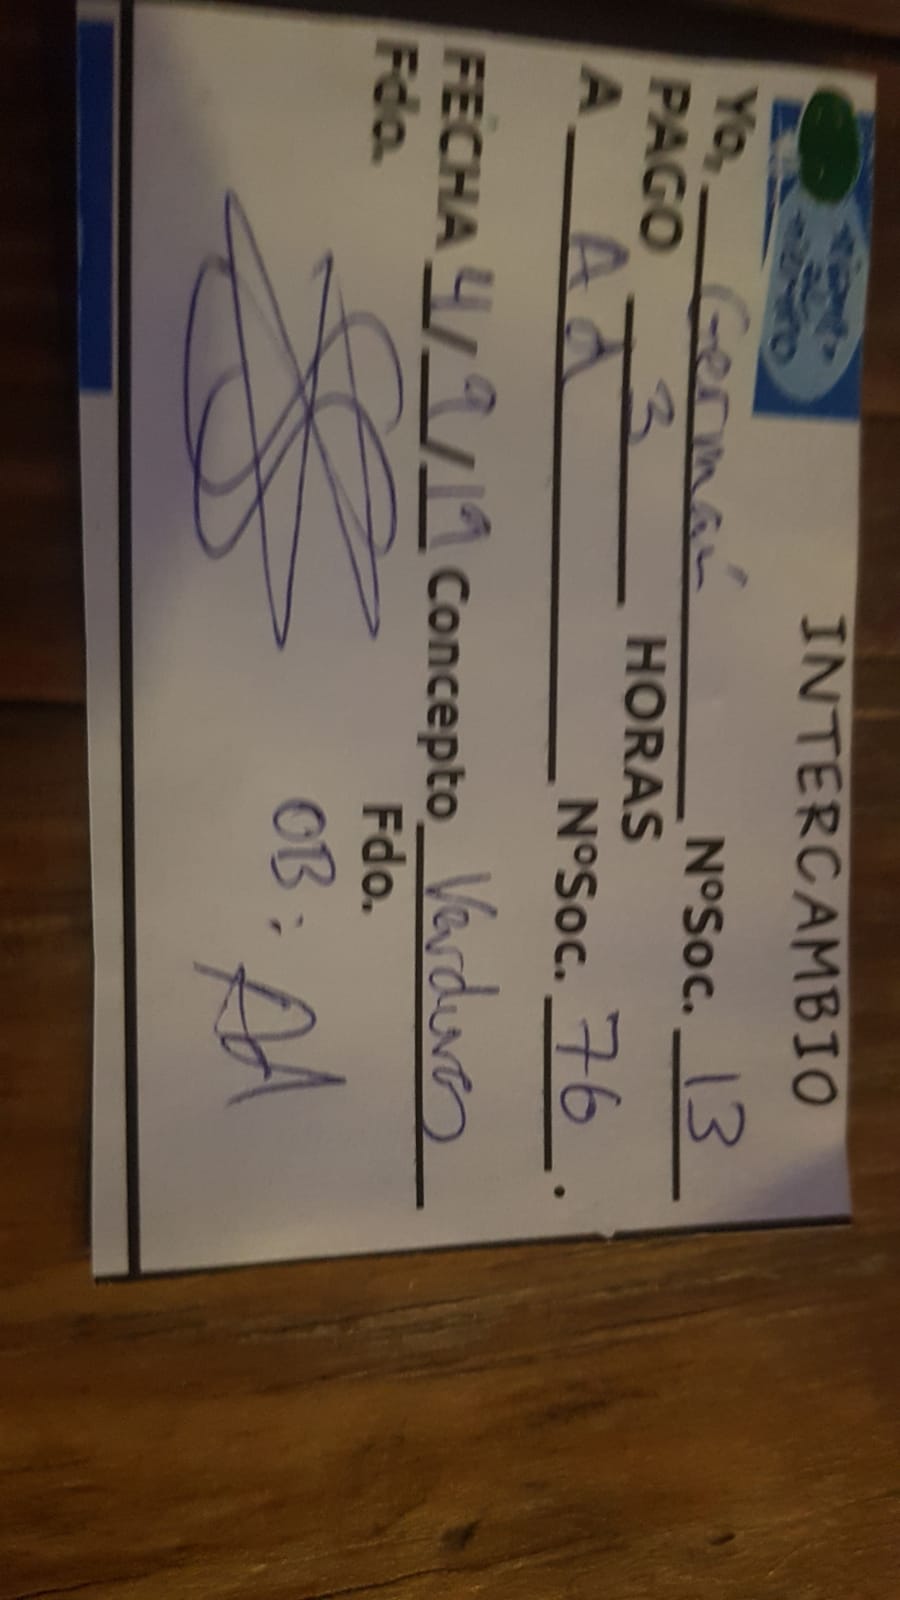 INTERCAMBIO
Yo, Germán NºSoc. 13
PAGO 3 HORAS
A Ad NºSoc. 76.
FECHA 4/9/19 Concepto Verduras
Fdo. Fdo.
OB: Ad